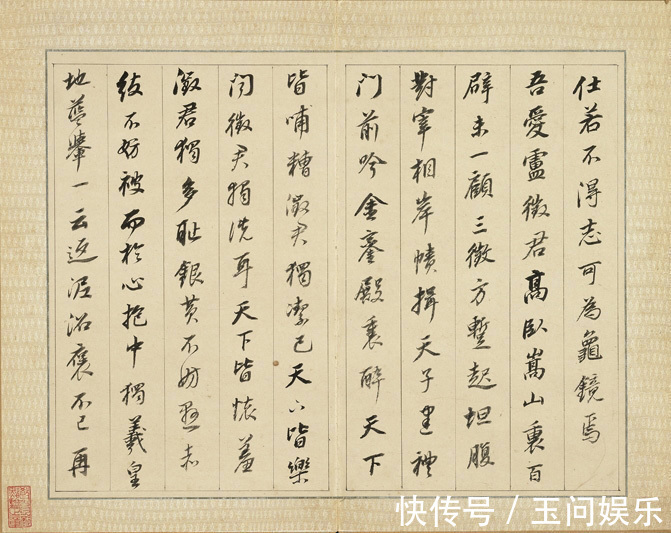 仕若不得志可為龜鏡焉
吾愛盧徵君高臥嵩山裏百
辟未一顧三徵方暫起坦腹
對宰相岸幘揖天子建禮
門前吟金鑾殿裏醉天下
皆哺糟徵君獨潔己天下皆樂
聞徵君獨洗耳天下皆懷羞
徵君獨多恥銀黃不妨懸赤
紱不妨被而於心抱中獨羲皇
地籃轝一云返泥詔褒不已再
快传号/玉问娱乐